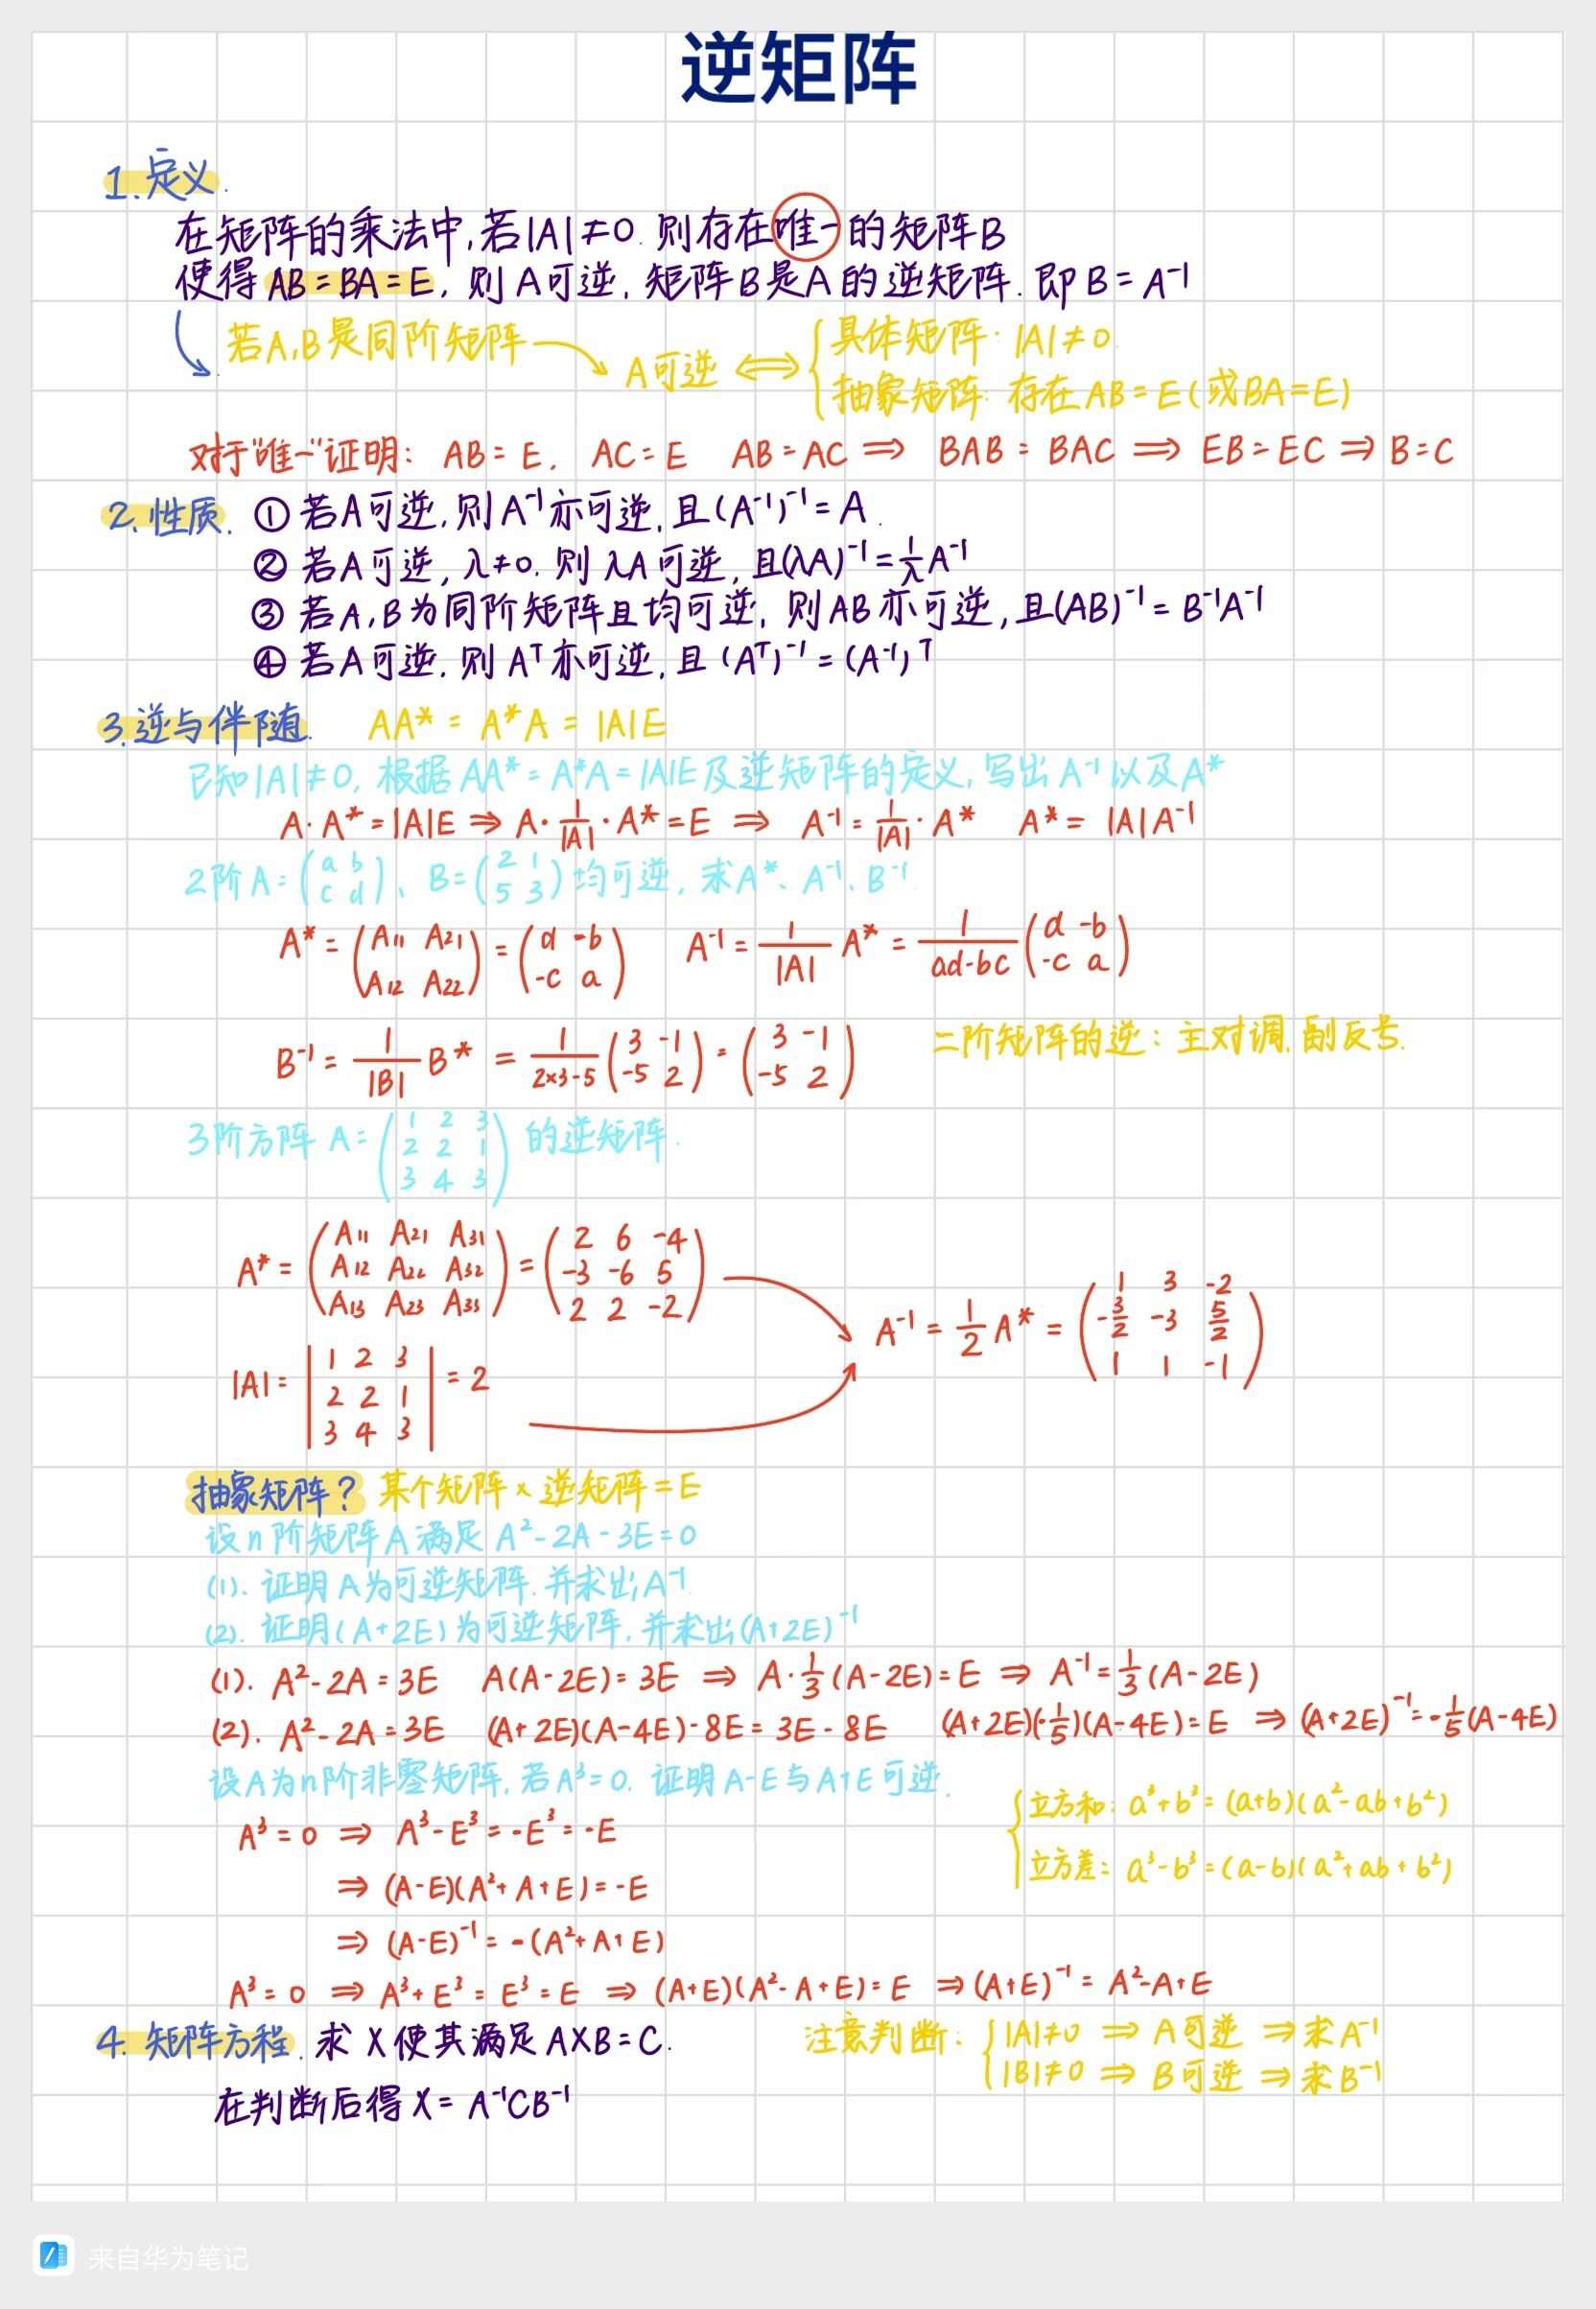 逆矩阵
1.定义.
在矩阵的乘法中,若|A|≠0.则存在唯一的矩阵B
使得 AB=BA=E, 则A可逆, 矩阵B是A的逆矩阵. 即B=A⁻¹
若A,B是同阶矩阵 A可逆 ⟺ { 具体矩阵: |A|≠0.
抽象矩阵: 存在AB=E(或BA=E)
对于"唯一"证明: AB=E, AC=E AB=AC ⇒ BAB=BAC ⇒ EB=EC ⇒ B=C
2.性质. ① 若A可逆,则A⁻¹亦可逆,且(A⁻¹)⁻¹=A.
② 若A可逆,λ≠0.则λA可逆,且(λA)⁻¹=1/λ A⁻¹
③ 若A,B为同阶矩阵且均可逆,则AB亦可逆,且(AB)⁻¹=B⁻¹A⁻¹
④ 若A可逆,则Aᵀ亦可逆,且(Aᵀ)⁻¹=(A⁻¹)ᵀ
3.逆与伴随. AA*=A*A=|A|E
已知|A|≠0, 根据AA*=A*A=|A|E及逆矩阵的定义,写出A⁻¹以及A*
A·A*=|A|E ⇒ A·1/|A|·A*=E ⇒ A⁻¹=1/|A|·A* A*=|A|A⁻¹
2阶A=(a b; c d)、B=(2 1; 5 3)均可逆,求A*、A⁻¹、B⁻¹.
A*=(A₁₁ A₂₁; A₁₂ A₂₂)=(d -b; -c a) A⁻¹=1/|A| A*=1/(ad-bc)(d -b; -c a)
B⁻¹=1/|B| B*=1/(2×3-5)(3 -1; -5 2)=(3 -1; -5 2) 二阶矩阵的逆: 主对调,副反号.
3阶方阵A=(1 2 3; 2 2 1; 3 4 3)的逆矩阵.
A*=(A₁₁ A₂₁ A₃₁; A₁₂ A₂₂ A₃₂; A₁₃ A₂₃ A₃₃)=(2 6 -4; -3 -6 5; 2 2 -2)
A⁻¹=1/2 A*=(1 3 -2; -3/2 -3 5/2; 1 1 -1)
|A|=|1 2 3; 2 2 1; 3 4 3|=2
抽象矩阵? 某个矩阵×逆矩阵=E
设n阶矩阵A满足A²-2A-3E=0
(1).证明A为可逆矩阵.并求出A⁻¹.
(2).证明(A+2E)为可逆矩阵,并求出(A+2E)⁻¹
(1). A²-2A=3E A(A-2E)=3E ⇒ A·1/3(A-2E)=E ⇒ A⁻¹=1/3(A-2E)
(2). A²-2A=3E (A+2E)(A-4E)-8E=3E-8E (A+2E)(-1/5)(A-4E)=E ⇒ (A+2E)⁻¹=-1/5(A-4E)
设A为n阶非零矩阵,若A³=0.证明A-E与A+E可逆.
{ 立方和: a³+b³=(a+b)(a²-ab+b²)
立方差: a³-b³=(a-b)(a²+ab+b²)
A³=0 ⇒ A³-E³=-E³=-E
⇒ (A-E)(A²+A+E)=-E
⇒ (A-E)⁻¹=-(A²+A+E)
A³=0 ⇒ A³+E³=E³=E ⇒ (A+E)(A²-A+E)=E ⇒ (A+E)⁻¹=A²-A+E
4. 矩阵方程.求X使其满足AXB=C. 注意判断: { |A|≠0 ⇒ A可逆 ⇒ 求A⁻¹
|B|≠0 ⇒ B可逆 ⇒ 求B⁻¹
在判断后得X=A⁻¹CB⁻¹
来自华为笔记